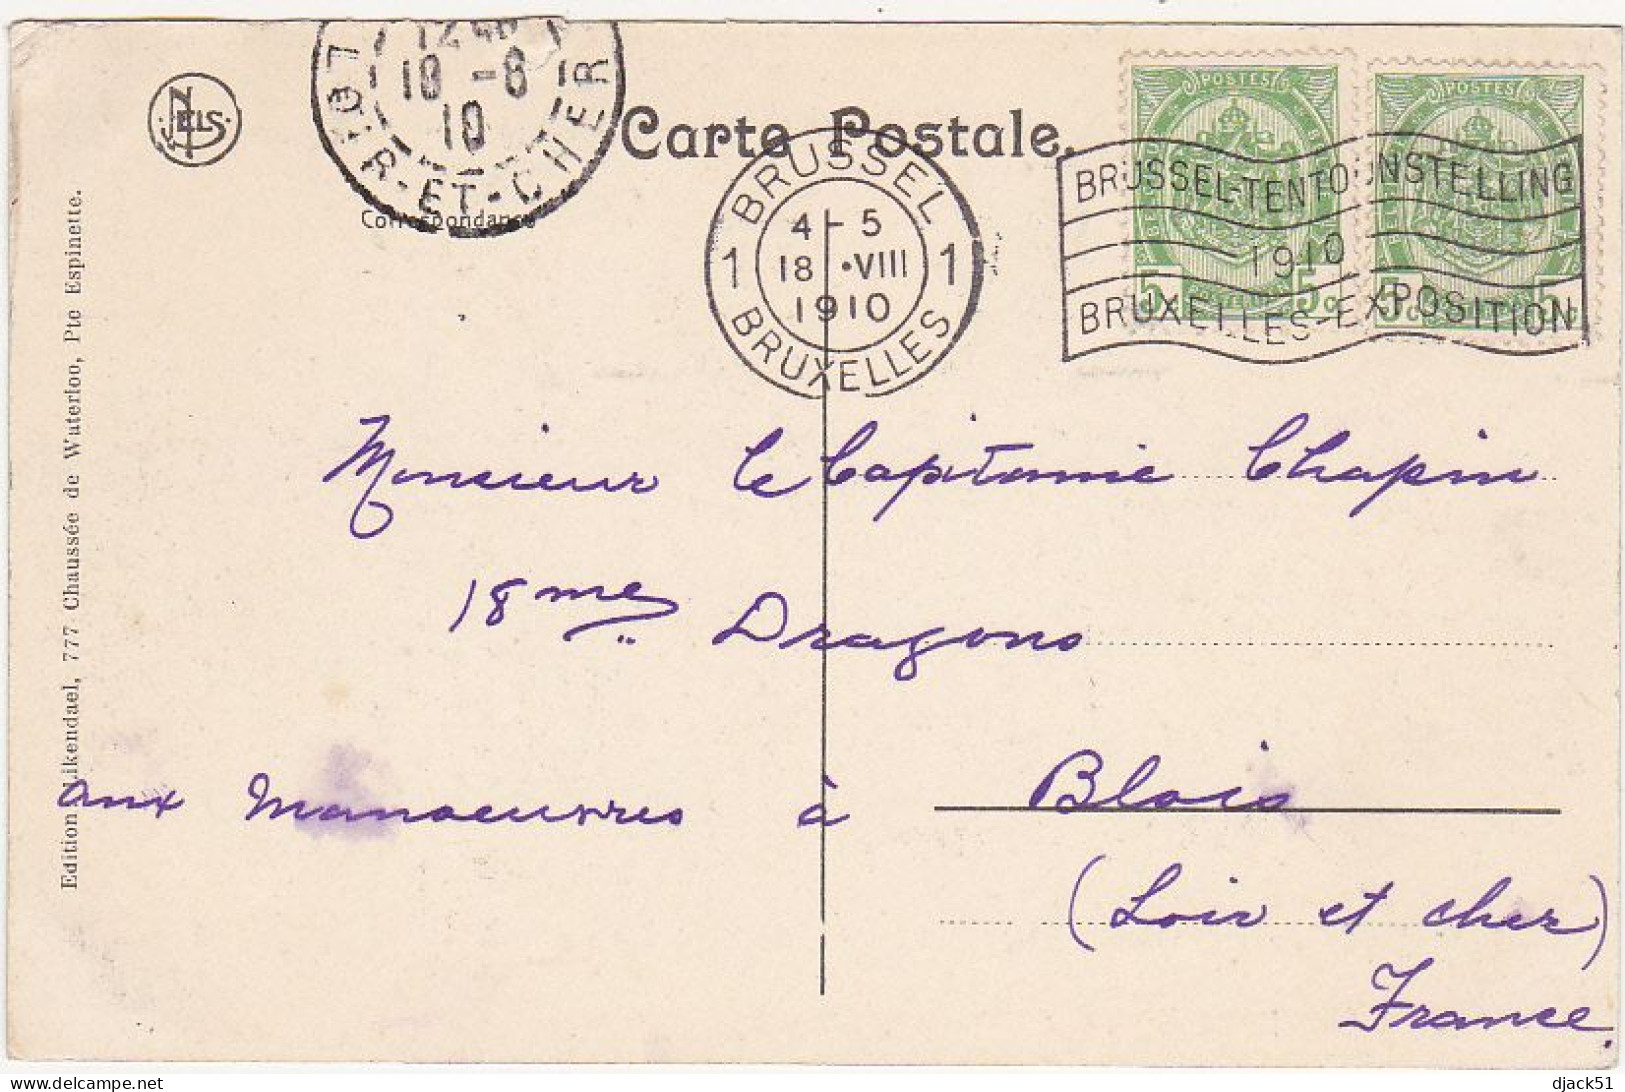 NELS
12 40
10 - 8
10
LOIR-ET-CHER
Carte Postale.
Correspondance
BRUSSEL
4 - 5
1 18 • VIII 1
1910
BRUXELLES
POSTES
POSTES
BRUSSEL-TENTOONSTELLING
1910
BRUXELLES-EXPOSITION
5c 5c
5c 5c
Edition Likendael, 777 Chaussée de Waterloo, Pte Espinette.
Monsieur le Capitanie Chapin
18me Dragons
aux manoeuvres à Blois
(Loir et Cher)
France.
djack51